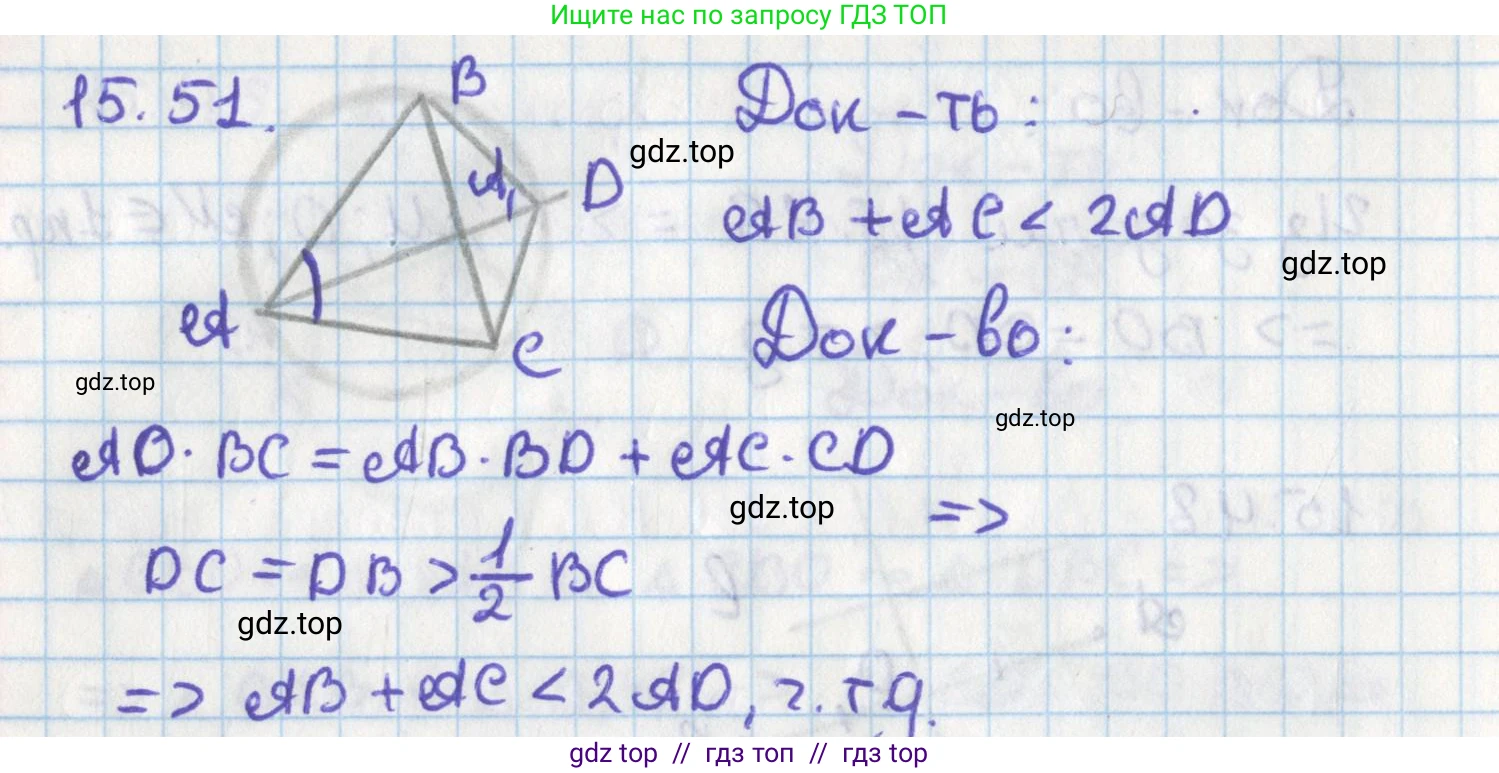 Ищите нас по запросу ГДЗ ТОП
15.51.
B
A₁
D
A
C
Док-ть:
gdz.top
AB + AC < 2AD
gdz.top
Док-во:
gdz.top
gdz.top
AD · BC = AB · BD + AC · CD
gdz.top
=>
DC = DB > 1/2 BC
gdz.top
=> AB + AC < 2AD, ч.тд.
gdz top // гдз топ // гдз top